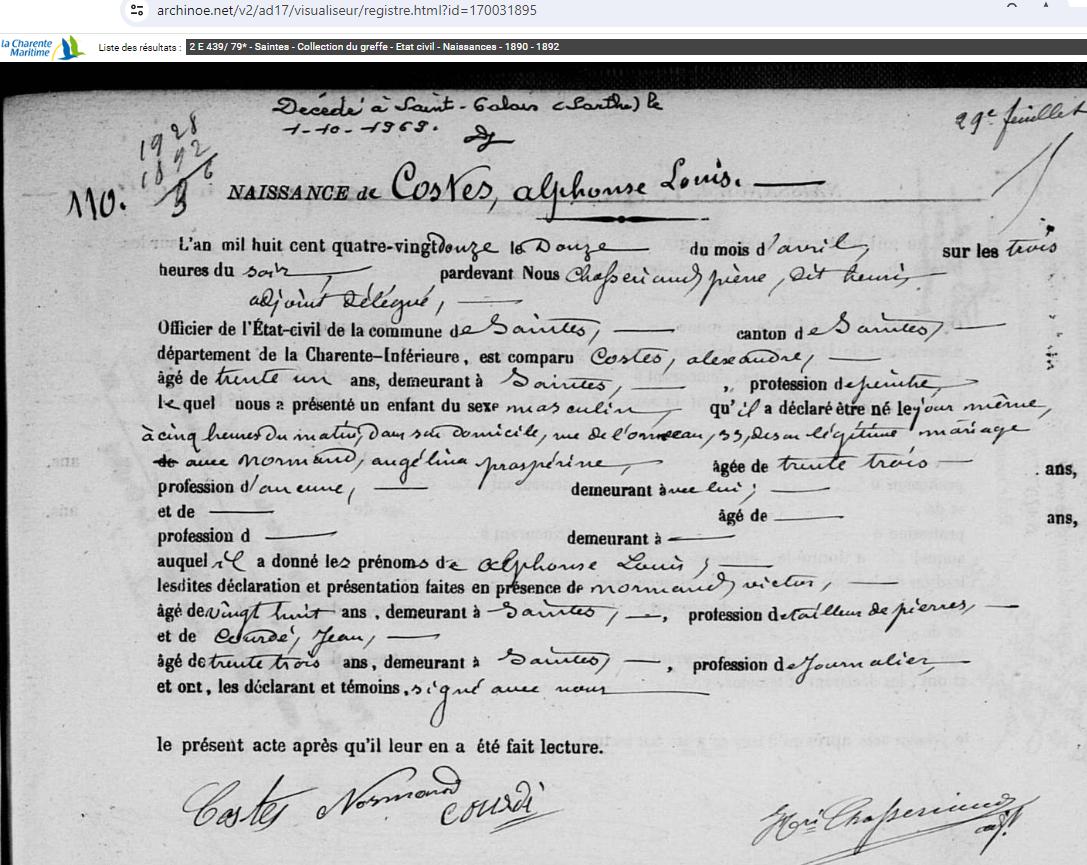 archinoe.net/v2/ad17/visualiseur/registre.html?id=170031895
la Charente
Maritime
Liste des résultats : 2 E 439/ 79* - Saintes - Collection du greffe - Etat civil - Naissances - 1890 - 1892
Décédé à Saint-Calais (Sarthe) le
1-10-1969.
29e feuillet
1928
1892
36
110.
NAISSANCE de Costes, alphonse Louis.
L'an mil huit cent quatre-vingt douze le Douze du mois d'avril, sur les trois
heures du soir, pardevant Nous Chasseriaud, pierre, dit henri,
adjoint délégué,
Officier de l'État-civil de la commune de Saintes, canton de Saintes,
département de la Charente-Inférieure, est comparu Costes, alexandre,
âgé de trente un ans, demeurant à Saintes, , profession de peintre,
lequel nous a présenté un enfant du sexe masculin, qu'il a déclaré être né le jour même,
à cinq heures du matin, dans son domicile, rue de l'ormeau, 33, de son légitime mariage
avec normand, angélina prospérine, âgée de trente trois ans,
profession d'aucune, demeurant avec lui ;
et de âgé de ans,
profession d demeurant à
auquel il a donné les prénoms de alphonse Louis ;
lesdites déclaration et présentation faites en présence de normand, victor,
âgé de vingt huit ans, demeurant à Saintes, , profession de tailleur de pierres,
et de Courdé, Jean,
âgé de trente trois ans, demeurant à Saintes, , profession de Journalier,
et ont, les déclarant et témoins, signé avec nous
le présent acte après qu'il leur en a été fait lecture.
Costes Normand
Hri Chasseriaud